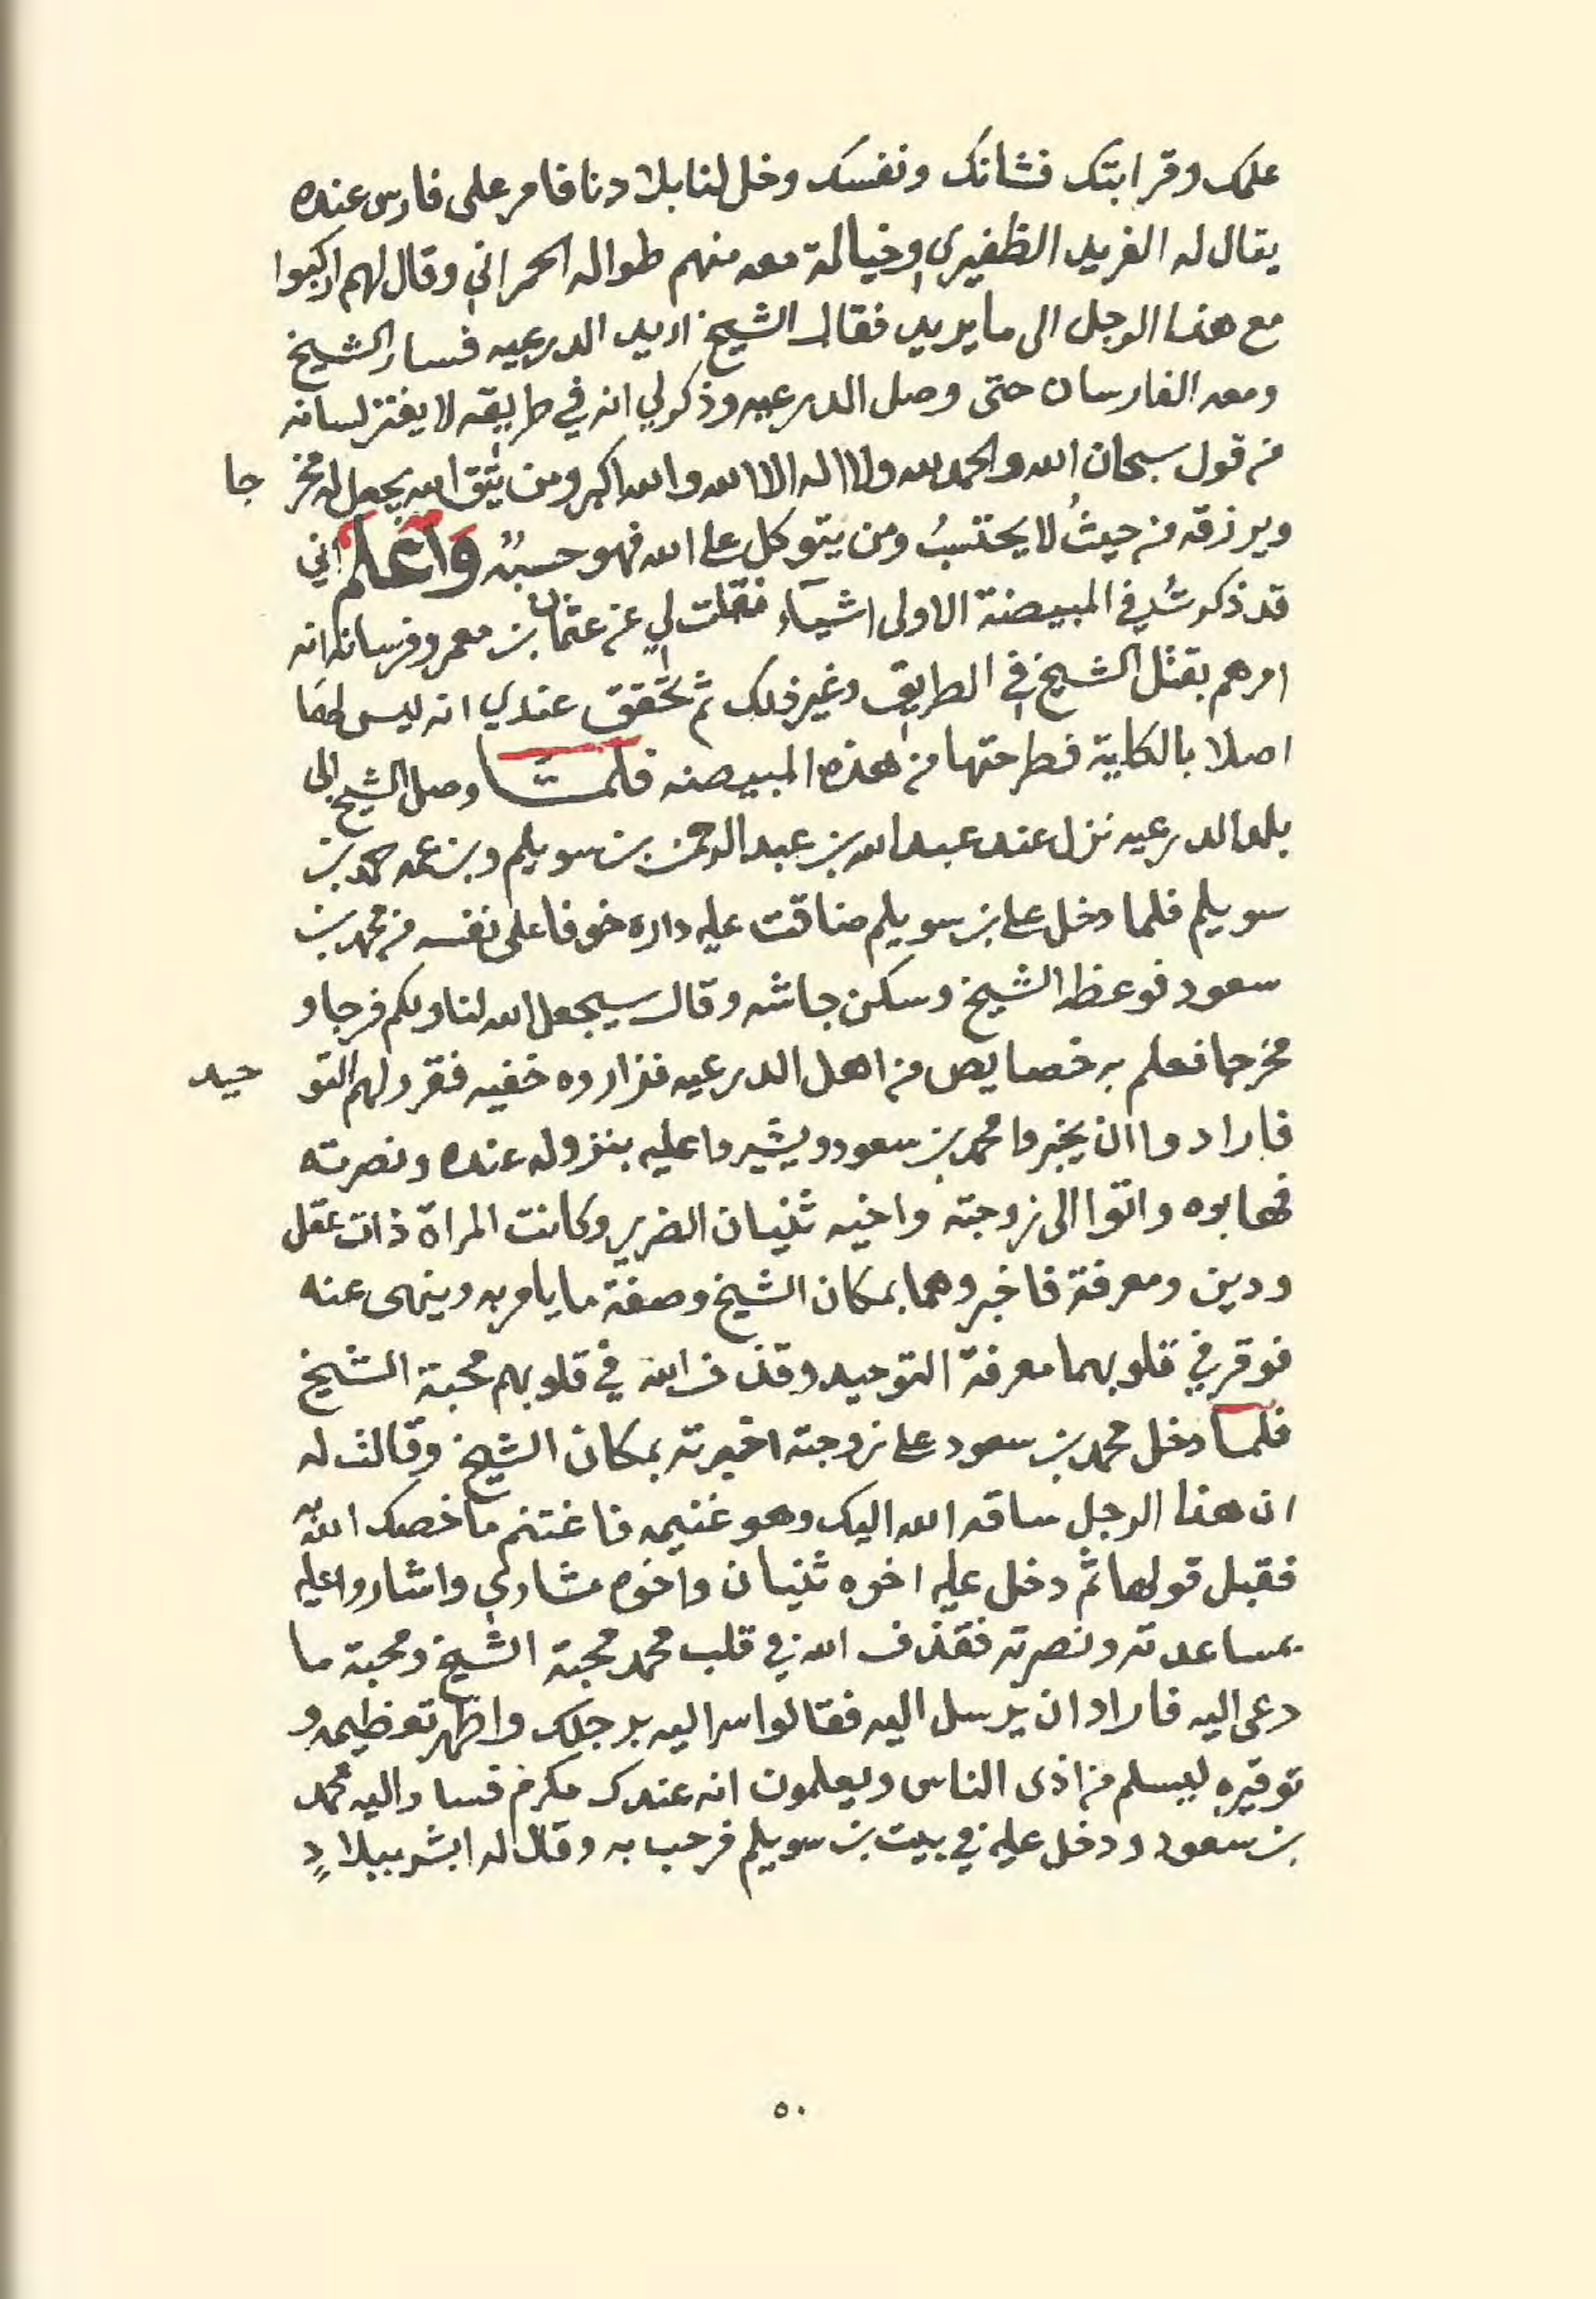 علمك وقرابتك فشانك ونفسك وخل لنا بلادنا فامر على فارس عنده
يقال له الفريد الظفيري وخيالة معه منهم طواله الحمراني وقال لهم اركبوا
مع هذا الرجل الى ما يريد فقال الشيخ اريد الدرعيه فسار الشيخ
ومعه الفارسان حتى وصل الدرعيه وذكر لي انه في طريقه لا يفتر لسانه
من قول سبحان الله والحمد لله ولا اله الا الله والله اكبر ومن يتق الله يجعل له مخر جا
ويرزقه من حيثُ لا يحتسبُ ومن يتوكل على الله فهو حسبه واعلم اني
قد ذكرتُ في المبيضة الاولى اشيآء نقلت لي عن عثمان بن معمر وفرسانه انه
امرهم بقتل الشيخ في الطريق وغير ذلك ثم تحقق عندي انه ليس لها
اصلا بالكلية فطرحتها من هذه المبيضه فلما وصل الشيخ الى
بلد الدرعيه نزل عند عبد الله بن عبد الرحمن بن سويلم وبن عمه حمد بن
سويلم فلما دخل على بن سويلم ضاقت عليه داره خوفا على نفسه من محمد بن
سعود فوعظه الشيخ وسكن جاشه وقال سيجعل الله لنا ولكم فرجا و
مخرجا فعلم به خصايص من اهل الدرعيه فزاروه خفيه فقرر لهم التو حيد
فارادوا ان يخبروا محمد بن سعود ويشيروا عليه بنزوله عنده ونصرته
فهابوه واتوا الى زوجته واخيه ثنيان الضرير وكانت المراة ذات عقل
ودين ومعرفة فاخبروهما بمكان الشيخ وصفة ما يامر به وينهى عنه
فوقر في قلوبهما معرفة التوحيد وقذف الله في قلوبهم محبة الشيخ
فلما دخل محمد بن سعود على زوجته اخبرته بمكان الشيخ وقالت له
ان هذا الرجل ساقه الله اليك وهو غنيمه فاغتنم ما خصك الله
فقبل قولها ثم دخل عليه اخوه ثنيان واخوه مشاري واشاروا عليه
بمساعدته ونصرته فقذف الله في قلب محمد محبة الشيخ ومحبة ما
دعى اليه فاراد ان يرسل اليه فقالوا سر اليه برجلك واظهر تعظيمه و
توقيره ليسلم من اذى الناس ويعلمون انه عندك مكرم فسار اليه محمد
بن سعود ودخل عليه في بيت بن سويلم فرحب به وقال له ابشر ببلادٍ
٥٠